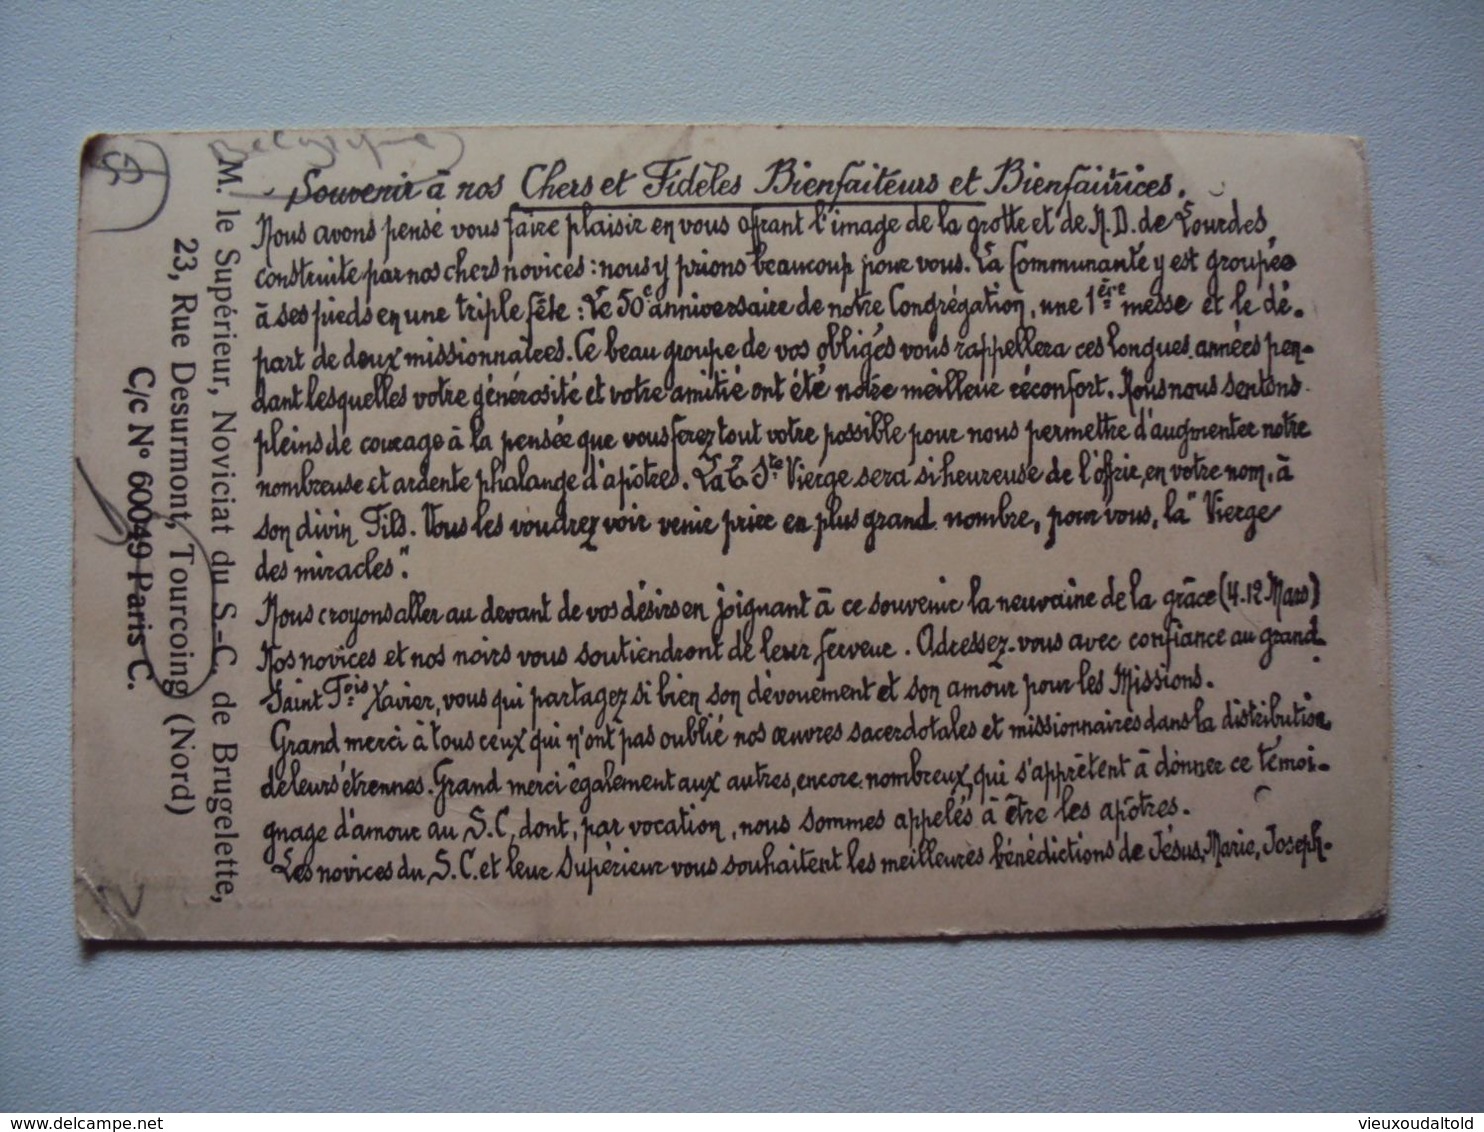 Belgique
Souvenir à nos Chers et Fidèles Bienfaiteurs et Bienfaitrices.
Nous avons pensé vous faire plaisir en vous offrant l'image de la grotte et de N.D. de Lourdes,
construite par nos chers novices : nous y prions beaucoup pour vous. La Communauté y est groupée
à ses pieds en une triple fête : Le 50e anniversaire de notre Congrégation, une 1ère messe et le dé-
part de deux missionnaires. Ce beau groupe de vos obligés vous rappellera ces longues années pen-
dant lesquelles votre générosité et votre amitié ont été notre meilleur réconfort. Nous nous sentons
pleins de courage à la pensée que vous ferez tout votre possible pour nous permettre d'augmenter notre
nombreuse et ardente phalange d'apôtres. La T. Ste Vierge sera si heureuse de l'offrir, en votre nom, à
son divin Fils. Vous les voudrez voir venir prier en plus grand nombre, pour vous, la "Vierge
des miracles".
Nous croyons aller au devant de vos désirs en joignant à ce souvenir la neuvaine de la grâce (4-12 Mars)
Nos novices et nos noirs vous soutiendront de leur ferveur. Adressez-vous avec confiance au grand
Saint Fois Xavier, vous qui partagez si bien son dévouement et son amour pour les Missions.
Grand merci à tous ceux qui n'ont pas oublié nos œuvres sacerdotales et missionnaires dans la distribution
de leurs étrennes. Grand merci également aux autres, encore nombreux, qui s'apprêtent à donner ce témoi-
gnage d'amour au S.C, dont, par vocation, nous sommes appelés à être les apôtres.
Les novices du S.C. et leur Supérieur vous souhaitent les meilleures bénédictions de Jésus, Marie, Joseph.
M. le Supérieur, Noviciat du S.-C. de Brugelette,
23, Rue Desurmont, Tourcoing (Nord)
C/c N° 60049 Paris C.
vieuxoudaltold